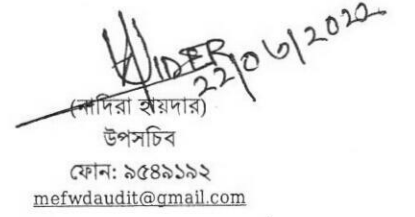 22/06/2022
(নাদিরা হায়দার)
উপসচিব
ফোন: ৯৫৪৯১৯২
mefwdaudit@gmail.com